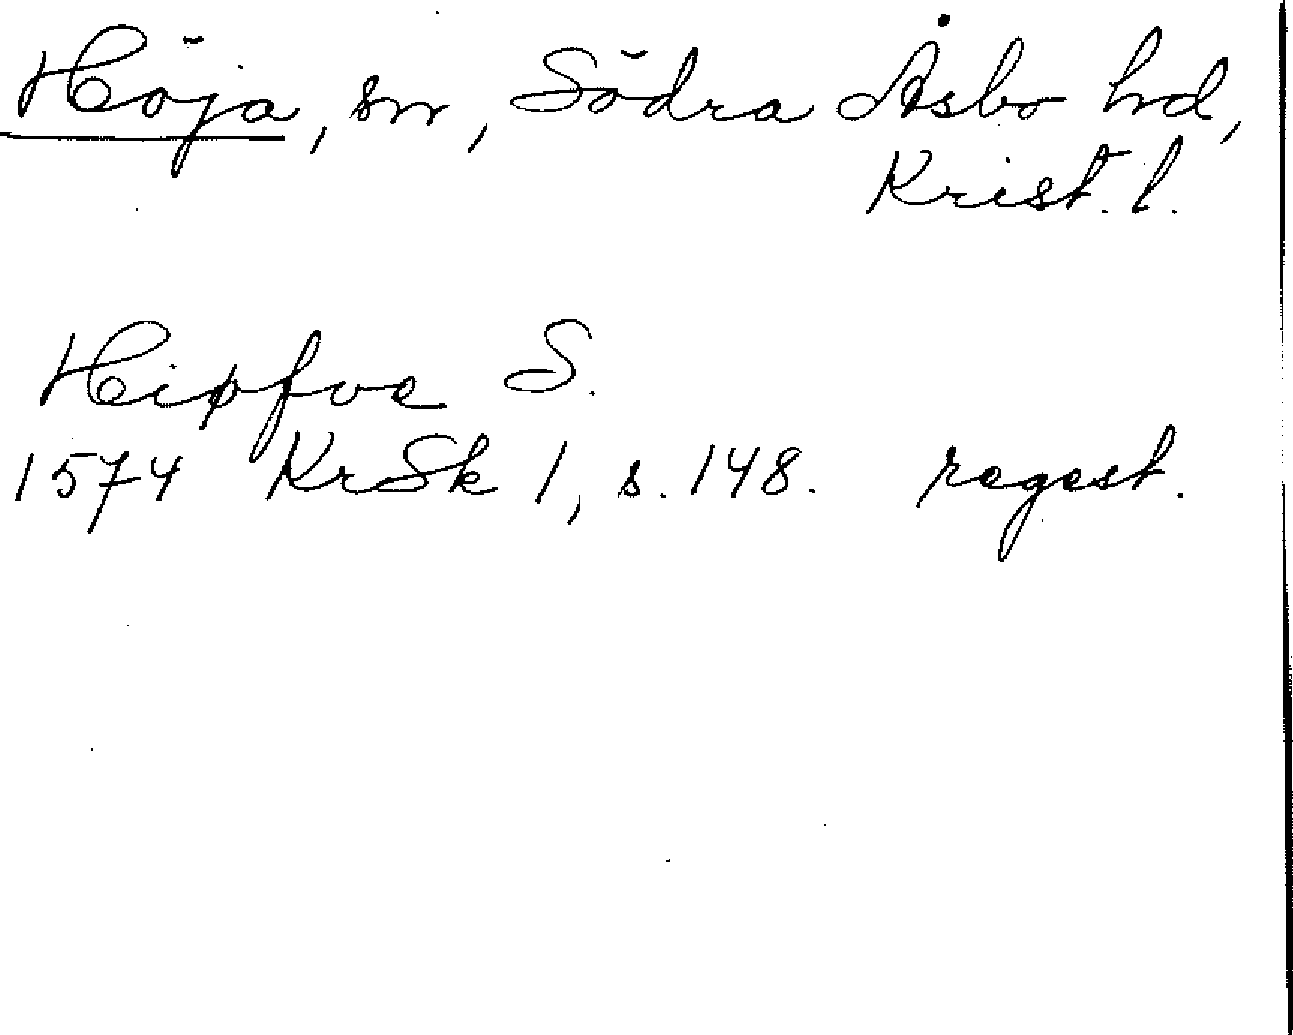 Höja, sn, Södra Åsbo hd,
Krist. l.
Hiøfve S.
1574 KrSk 1, s. 148. regest.